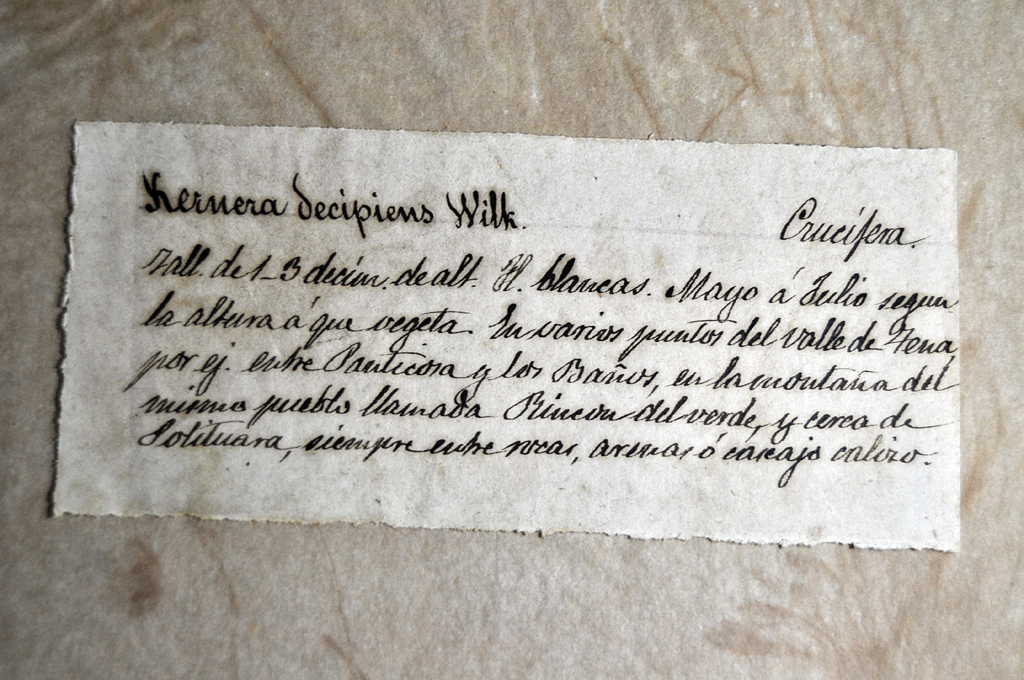 Kernera decipiens Wilk.
Crucífera.
Tall. de 1-3 decím. de alt. Fl. blancas. Mayo á Julio segun
la altura á que vegeta. En varios puntos del valle de Tena,
por ej. entre Panticosa y los Baños, en la montaña del
mismo pueblo llamada Rincon del verde, y cerca de
Solituara, siempre entre rocas, arenas ó cascajo calizo.